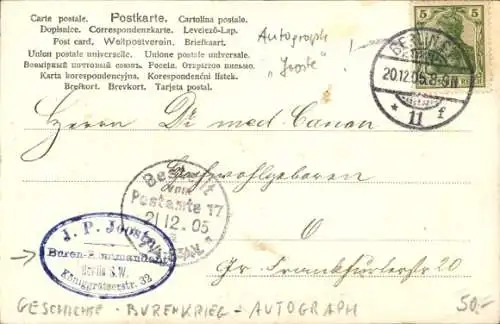 Carte postale. Postkarte. Cartolina postale.
Dopisnice. Correspondenzkarte. Levelező-Lap.
Post card. Weltpostverein. Briefkaart.
Union postale universelle. Unione postale universale.
Всемірный почтовый союзъ. Россія. Открытое письмо.
Karta korespondencyjna. Korespondenční lístek.
Brefkort. Brevkort. Tarjeta postal.
Autograph
"Jooste"
5 5
BERLIN
20.12.05.8-9N
* 11 f
Herrn Dr med. Canon
Hochwohlgeboren
Bestellt
vom
Postamte 17
21.12.05
J. P. Jooste
Buren-Kommandant
Berlin S.W.
Königgrätzerstr. 32
O
Gr. Frankfurterstr 20
GESCHICHTE - BURENKRIEG - AUTOGRAPH
50.-